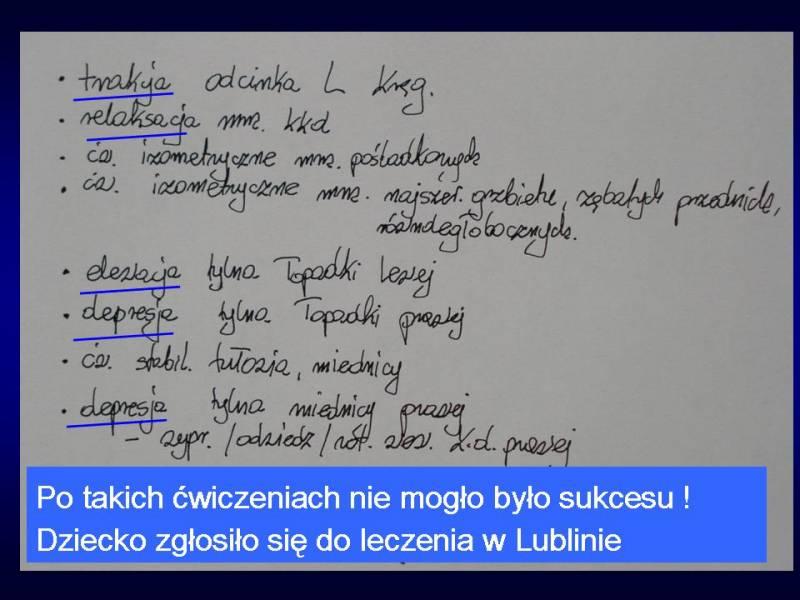 • trakcja odcinka L kręg.
• relaksacja mm. kkd
• ćw. izometryczne mm. pośladkowych
• ćw. izometryczne mm. najszer. grzbietu, zębatych przednich,
równoległobocznych.
• elewacja tylna łopatki lewej
• depresja tylna łopatki prawej
• ćw. stabil. tułowia, miednicy
• depresja tylna miednicy prawej
– wypr. / odwiedz / rot. wew. k.d. prawej
Po takich ćwiczeniach nie mogło było sukcesu !
Dziecko zgłosiło się do leczenia w Lublinie